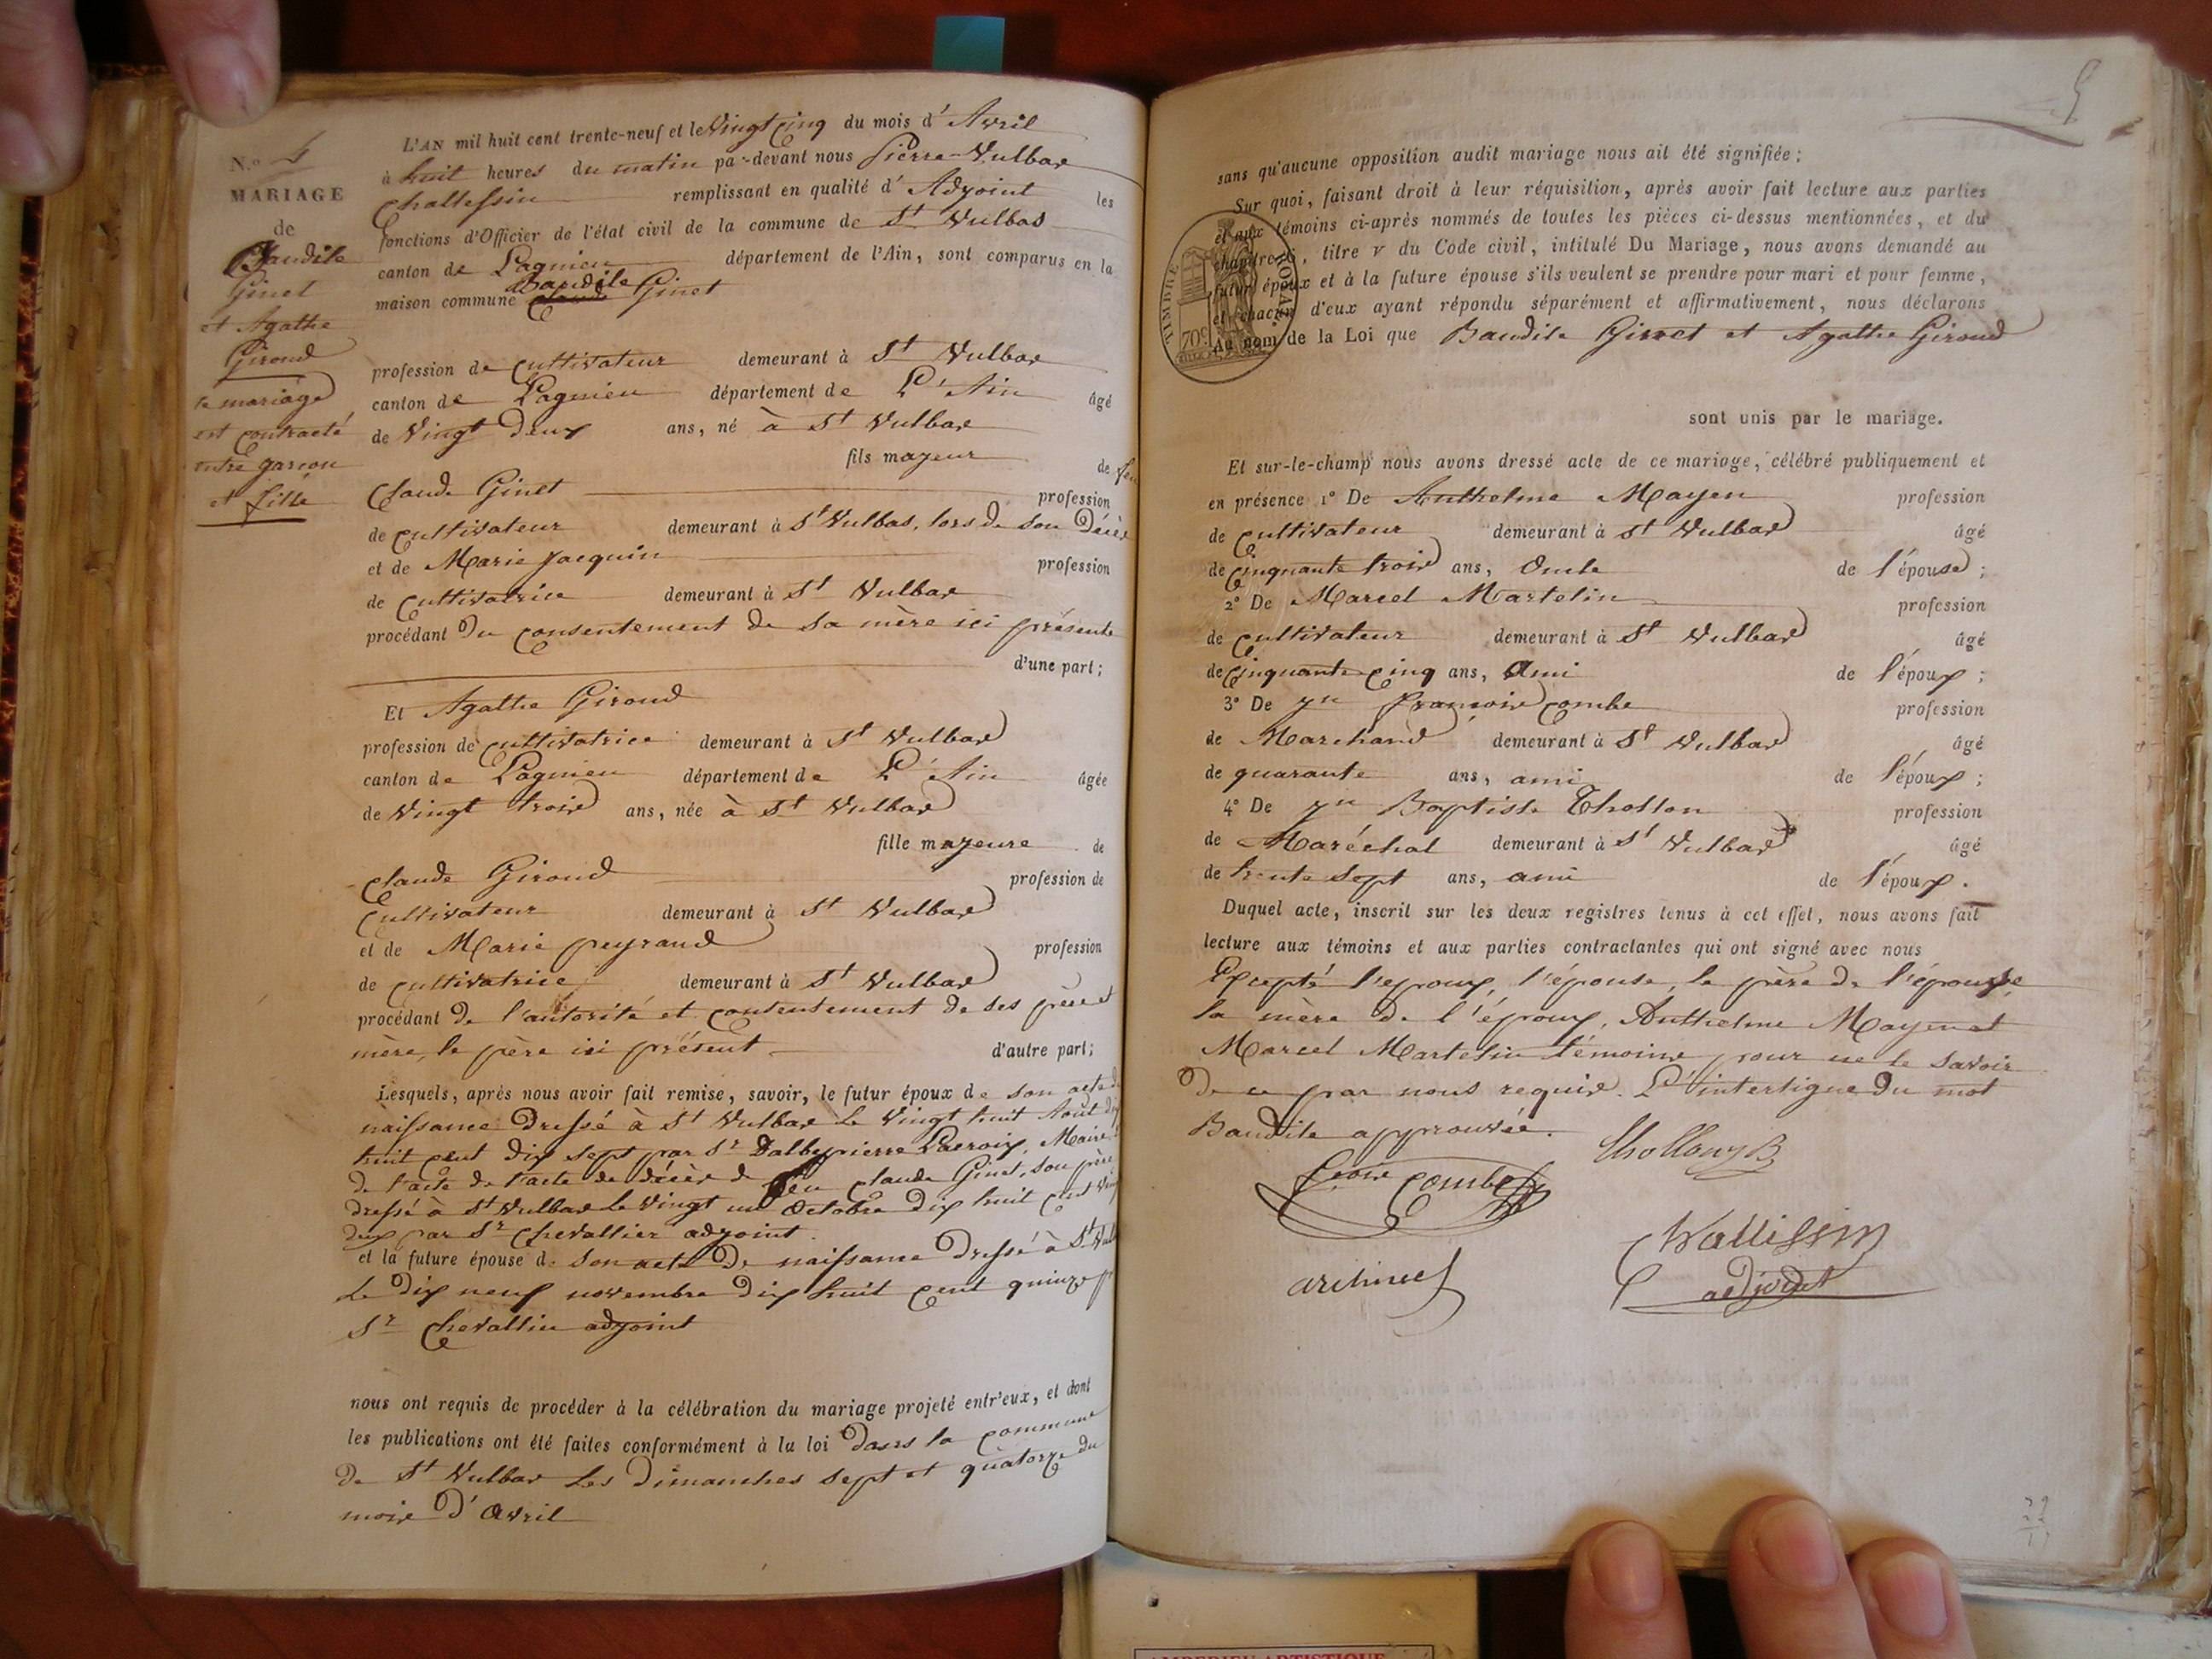 N.o 4
MARIAGE
de
Baudile
Ginet
et Agathe
Giroud
le mariage
est contracté
entre garçon
et fille
L'AN mil huit cent trente-neuf et le Vingt Cinq du mois d'Avril
à huit heures du matin par-devant nous Pierre Vulbas
Challessin remplissant en qualité d'Adjoint les
fonctions d'Officier de l'état civil de la commune de St Vulbas
canton de Lagnieu département de l'Ain, sont comparus en la
Baudile
maison commune Ginet
profession de Cultivateur demeurant à St Vulbas
canton de Lagnieu département de L'Ain âgé
de Vingt Deux ans, né à St Vulbas
fils majeur de feu
Claude Ginet profession
de Cultivateur demeurant à St Vulbas, lors de son Décès
et de Marie Jacquin profession
de Cultivatrice demeurant à St Vulbas
procédant Du Consentement de sa mère ici présente
d'une part;
Et Agathe Giroud
profession de Cultivatrice demeurant à St Vulbas
canton de Lagnieu département de L'Ain âgée
de Vingt trois ans, née à St Vulbas
fille majeure de
Claude Giroud profession de
Cultivateur demeurant à St Vulbas
et de Marie peyraud profession
de Cultivatrice demeurant à St Vulbas
procédant de l'autorité et Consentement de ses père et
mère, le père ici présent d'autre part;
Lesquels, après nous avoir fait remise, savoir, le futur époux de son acte de
naissance Dressé à St Vulbas le Vingt huit Août dix
huit cent dix sept par Sr Dalbepierre Lacroix, Maire
de l'acte de l'acte de décès de feu Claude Ginet, son père
dressé à St Vulbas le Vingt un Octobre Dix huit cent Vingt
deux par Sr Chevallier adjoint
et la future épouse de son acte De naissance Dressé à St Vulbas
le Dix neuf novembre Dix huit Cent quinze
Sr Chevallier adjoint
nous ont requis de procéder à la célébration du mariage projeté entr'eux, et dont
les publications ont été faites conformément à la loi Dans la commune
De St Vulbas Les Dimanches sept et quatorze du
mois D'Avril
5
sans qu'aucune opposition audit mariage nous ait été signifiée;
Sur quoi, faisant droit à leur réquisition, après avoir fait lecture aux parties
et aux témoins ci-après nommés de toutes les pièces ci-dessus mentionnées, et du
chapitre 6, titre v du Code civil, intitulé Du Mariage, nous avons demandé au
futur époux et à la future épouse s'ils veulent se prendre pour mari et pour femme,
et chacun d'eux ayant répondu séparément et affirmativement, nous déclarons
Au nom de la Loi que Baudile Ginet et Agathe Giroud
TIMBRE ROYAL
70c
sont unis par le mariage.
Et sur-le-champ nous avons dressé acte de ce mariage, célébré publiquement et
en présence 1° De Anthelme Mayen profession
de Cultivateur demeurant à St Vulbas âgé
de Cinquante trois ans, Oncle de l'épouse;
2° De Marcel Martelin profession
de Cultivateur demeurant à St Vulbas âgé
de Cinquante Cinq ans, Ami de l'époux;
3° De Jn François Combe profession
de Marchand demeurant à St Vulbas âgé
de quarante ans, ami de l'époux;
4° De Jn Baptiste Thollon profession
de Maréchal demeurant à St Vulbas âgé
de trente sept ans, ami de l'époux.
Duquel acte, inscrit sur les deux registres tenus à cet effet, nous avons fait
lecture aux témoins et aux parties contractantes qui ont signé avec nous
Excepté l'époux, l'épouse, le père De l'épouse
la mère De l'époux, Anthelme Mayen et
Marcel Martelin témoins pour ne le savoir
De ce par nous requis. L'interligne Du mot
Baudile approuvée.
Thollon JB
fçois Combe
Challissin
adjoint